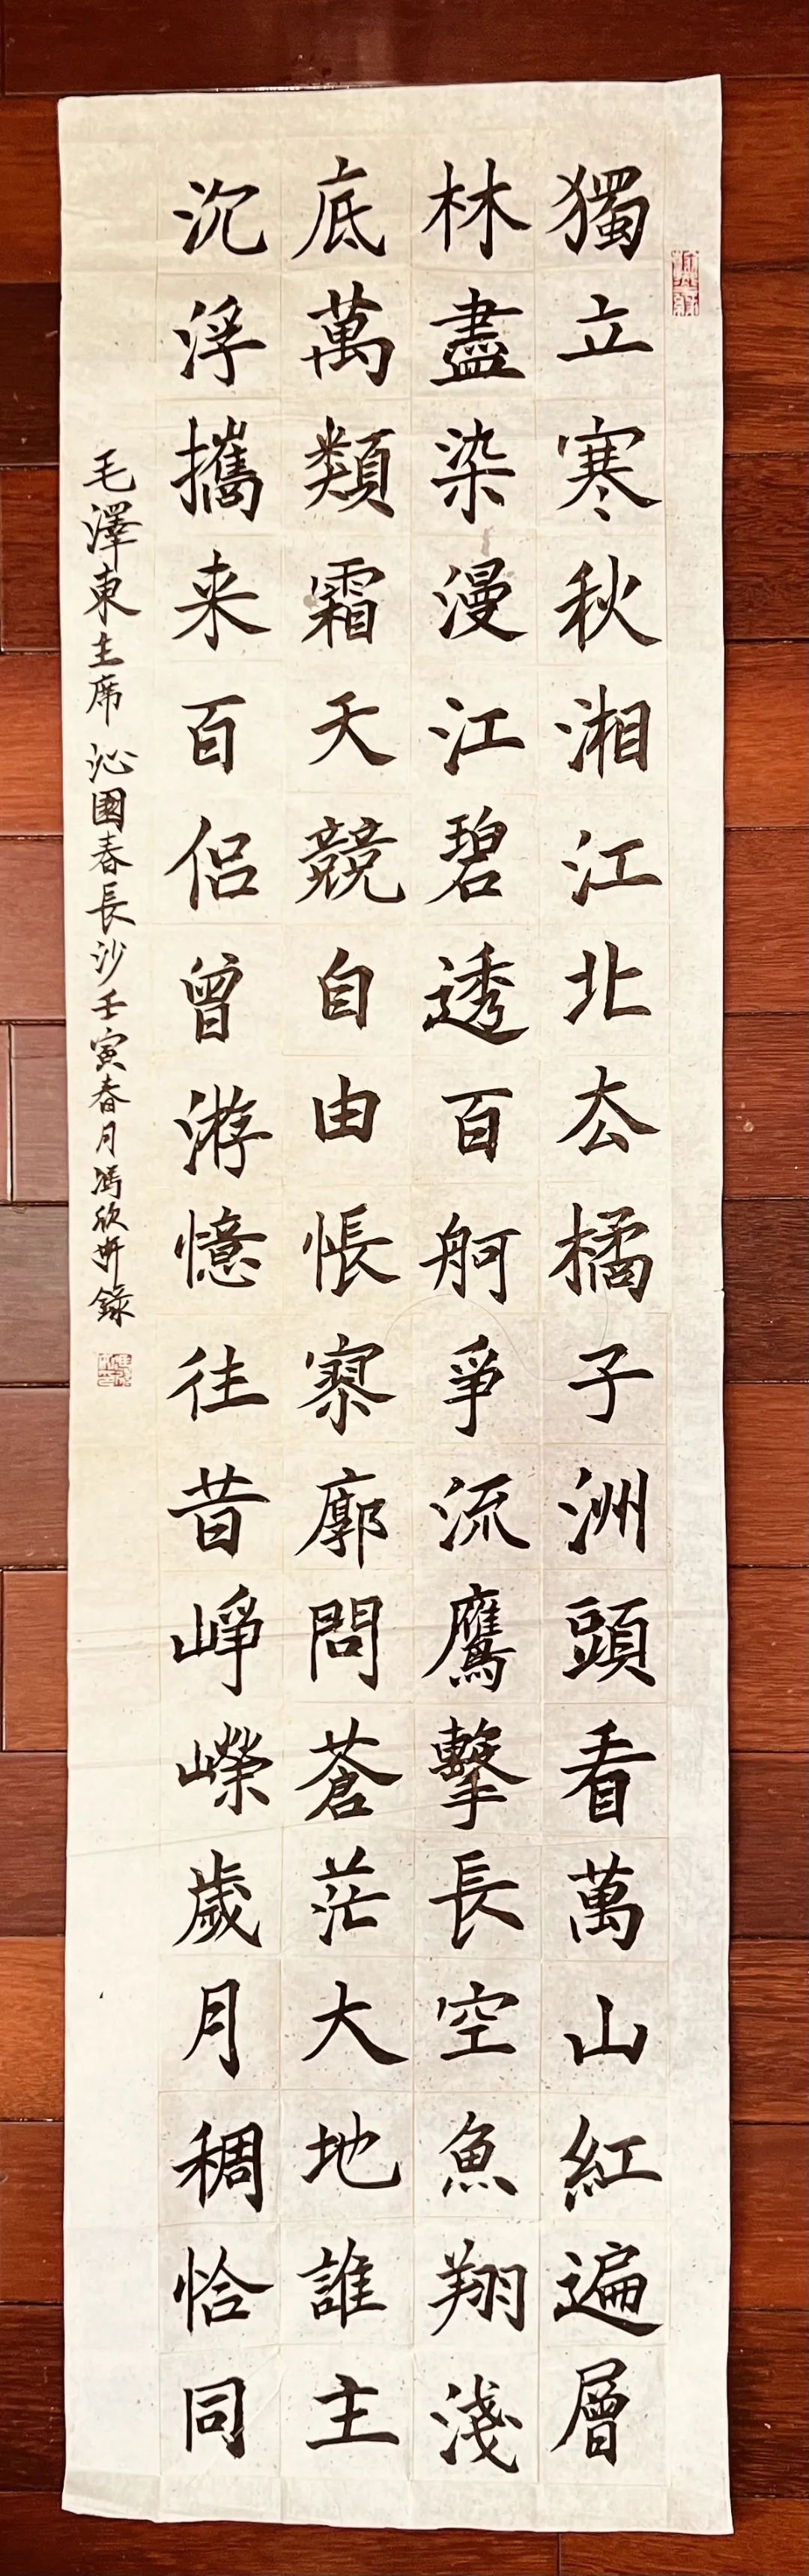 獨立寒秋湘江北厺橘子洲頭看萬山紅遍層
林盡染漫江碧透百舸爭流鷹擊長空魚翔淺
底萬類霜天競自由悵寥廓問蒼茫大地誰主
沉浮攜来百侣曾游憶往昔崢嶸歲月稠恰同
毛澤東主席沁園春長沙壬寅春月馮欣妍錄